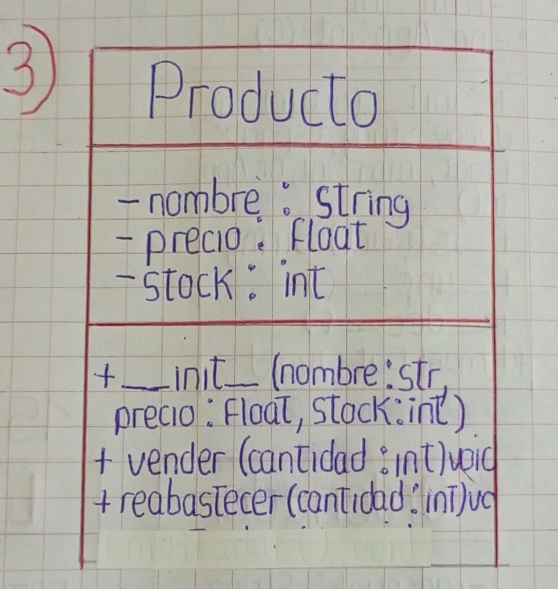 3)
Producto
- nombre : string
- precio : float
- stock : int
+ __init__ (nombre : str,
precio : float, stock : int)
+ vender (cantidad : int) void
+ reabastecer (cantidad : int) vo